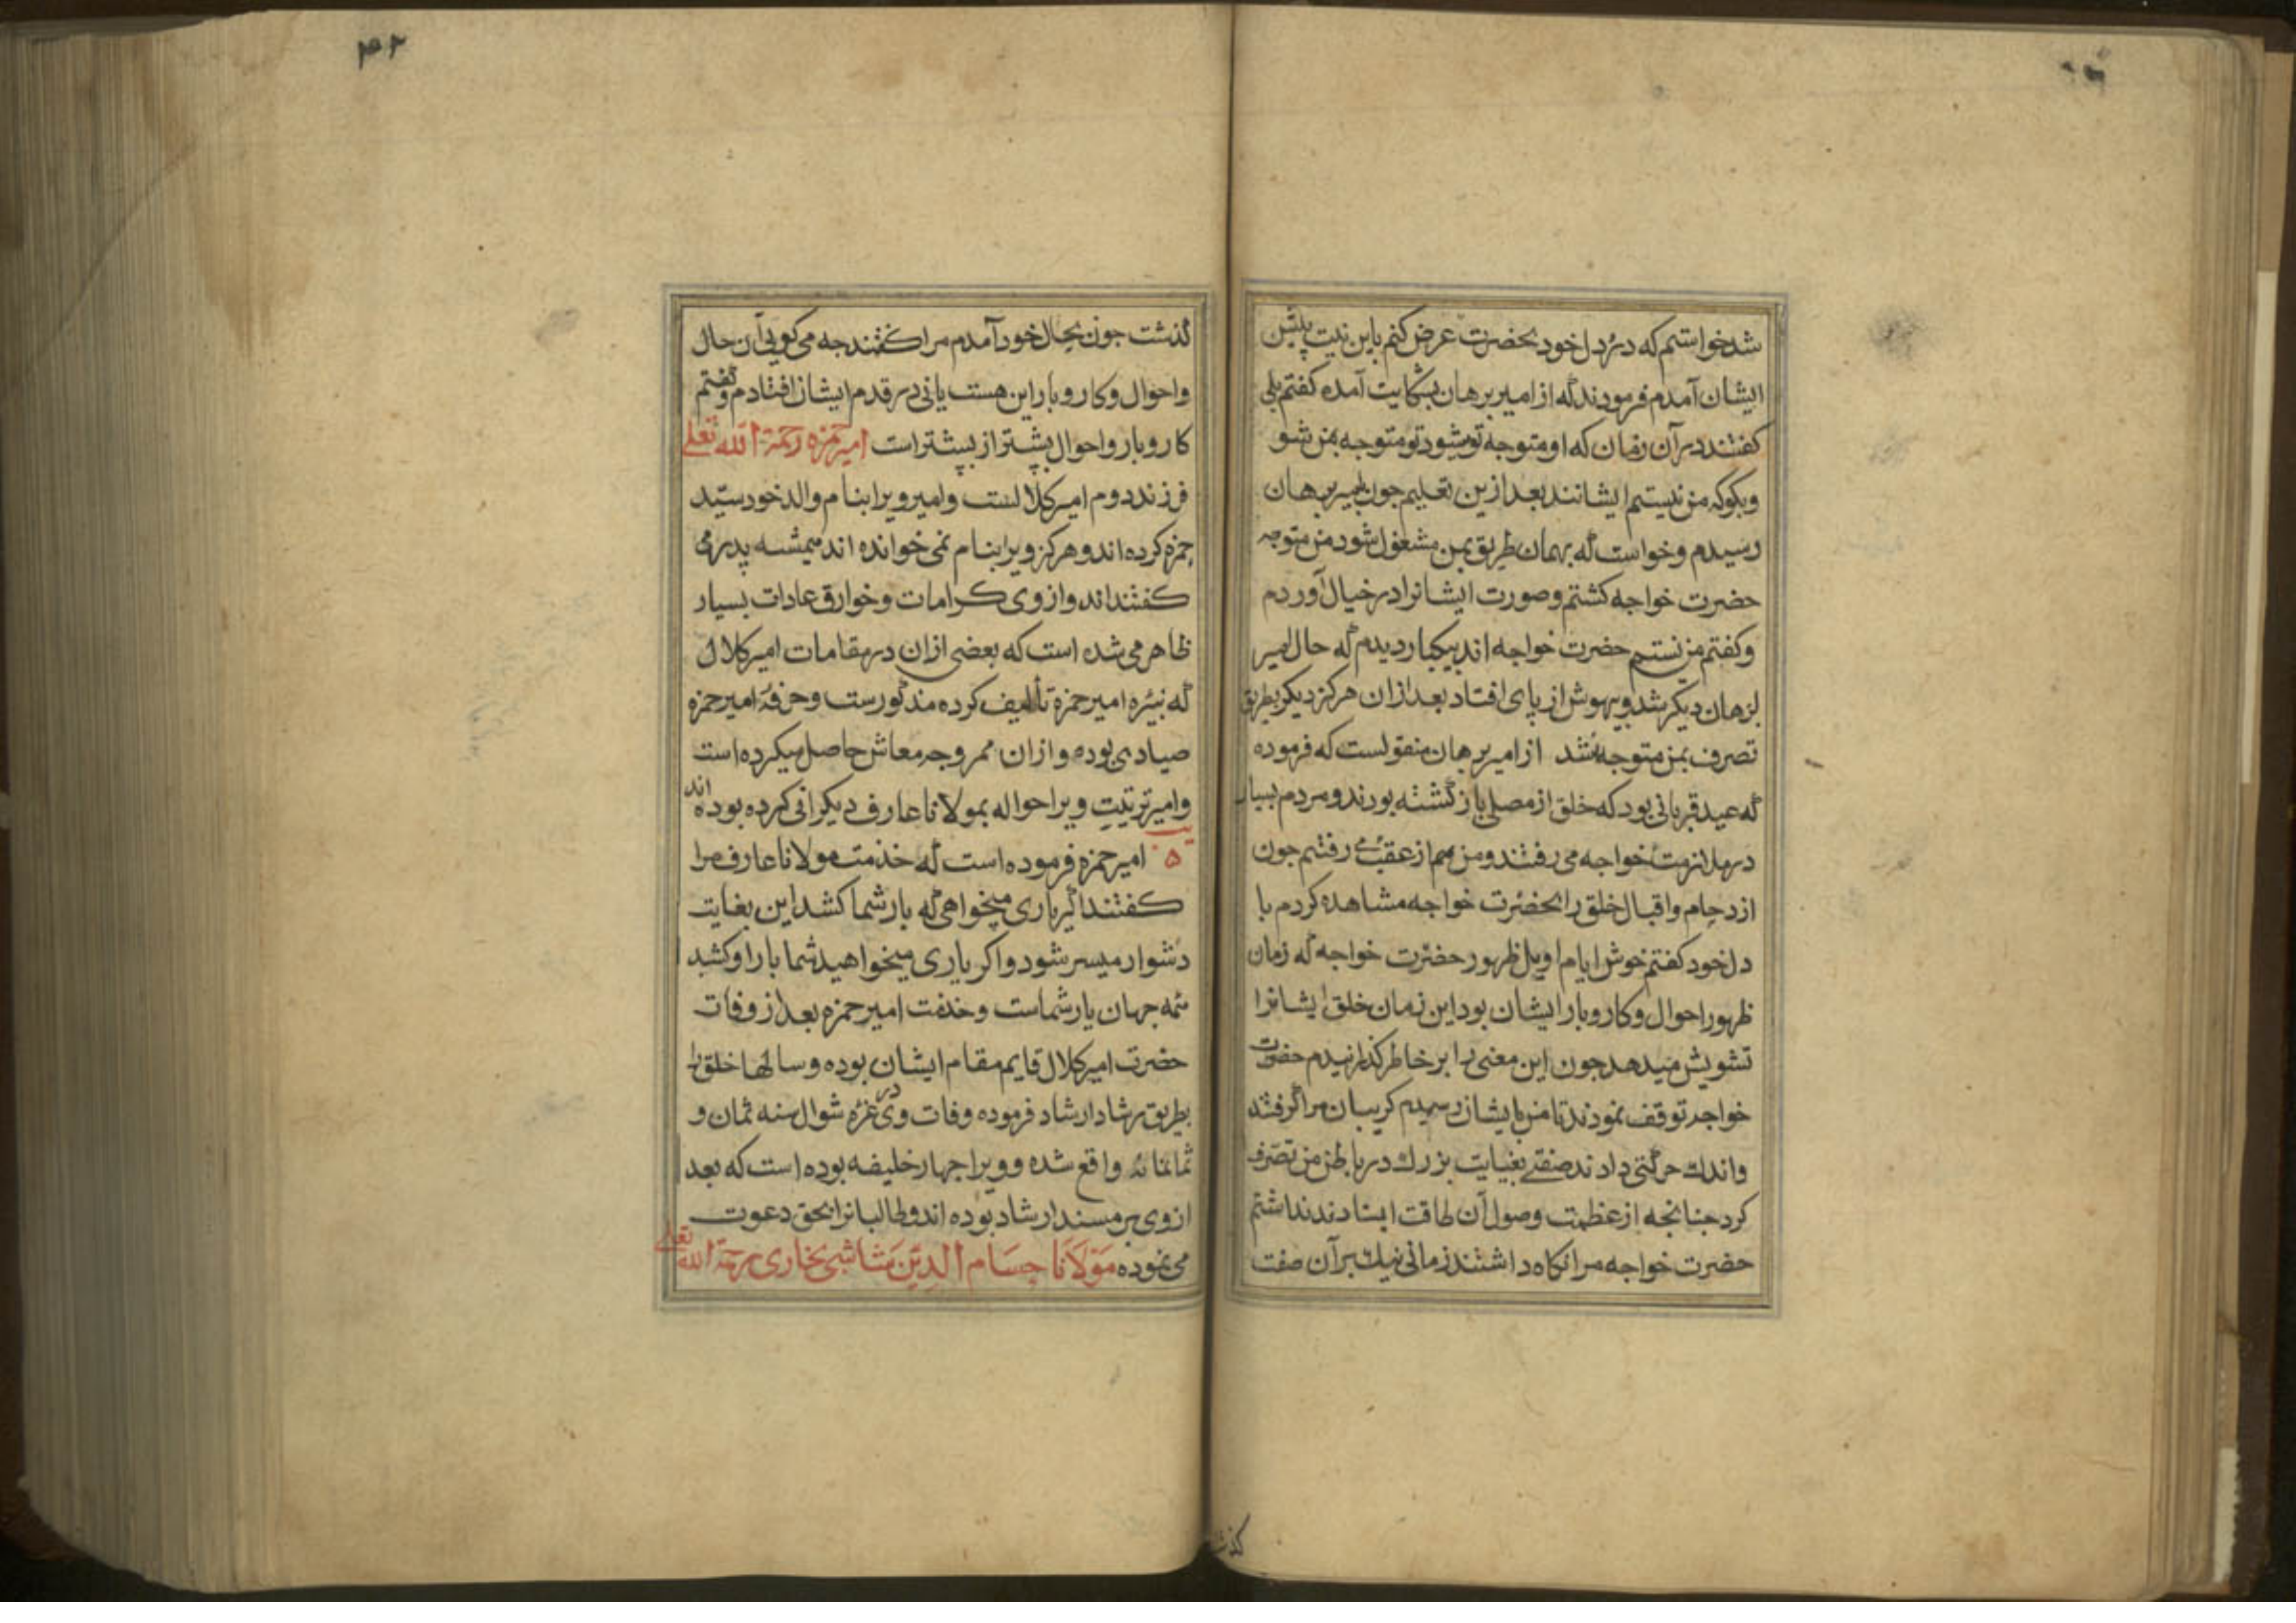 شد خواستم که درد دل خود بحضرت عرض کنم باین نیت پیش
ایشان آمدم فرمودند که از امیر برهان بشکایت آمده کفتم بلی
کفتند در آن زمان که او متوجه تو شود تو متوجه بمن شو
وبکو که من نیستم ایشانند بعد ازین تعلیم جون بامیر برهان
رسیدم وخواست که بهمان طریق بمن مشغول شود من متوجه
حضرت خواجه کشتم وصورت ایشانرا در خیال آوردم
وکفتم من نیستم حضرت خواجه اند بیکبار دیدم که حال امیر
برهان دیکر شد وبیهوش از پای افتاد بعد ازان هرکز دیکر بطریق
تصرف بمن متوجه نشد از امیر برهان منقولست که فرموده
که عید قربانی بود که خلق از مصلی باز کشته بودند ومردم بسیار
در ملازمت خواجه می رفتند ومن هم از عقب می رفتم جون
ازدحام واقبال خلق را بحضرت خواجه مشاهده کردم با
دل خود کفتم خوش ایام اوایل ظهور حضرت خواجه که زمان
ظهور احوال وکار وبار ایشان بود این زمان خلق ایشانرا
تشویش میدهد جون این معنی را بر خاطر کذرانیدم حضرت
خواجه توقف نمودند تا من بایشان رسیدم کریبان مرا کرفتند
واندک حرکتی دادند صفتی بغایت بزرک در باطن من تصرف
کرد جنانجه از عظمت وصول آن طاقت ایستادند نداشتم
حضرت خواجه مرا نکاه داشتند زمانی نیک بر آن صفت
کذشت
۴۲
کذشت جون بحال خود آمدم مرا کفتند جه می کویی آن حال
واحوال وکار وبار این هست یا نی در قدم ایشان افتادم وکفتم
کار وبار واحوال بیشتر از بیشتر است امیر حمزه رحمة الله تعلی
فرزند دوم امیر کلالست وامیر ویرا بنام والد خود سید
حمزه کرده اند وهرکز ویرا بنام نمی خوانده اند همیشه پدر می
کفته اند واز وی کرامات وخوارق عادات بسیار
ظاهر می شده است که بعضی ازان در مقامات امیر کلال
که نبیره امیر حمزه تألیف کرده مذکورست وحرفهٔ امیر حمزه
صیادی بوده وازان ممر وجه معاش حاصل میکرده است
وامیر تربیت ویرا حواله بمولانا عارف دیکرانی کرده بوده اند
امیر حمزه فرموده است که خدمت مولانا عارف مرا
کفتند اکر یاری میخواهی که بار شما کشد این بغایت
دشوار میسر شود واکر یاری میخواهید شما بار او کشید
همه جهان یار شماست وخدمت امیر حمزه بعد از وفات
حضرت امیر کلال قایم مقام ایشان بوده وسالها خلق را
بطریق رشاد ارشاد فرموده وفات وی در غره شوال سنه ثمان و
ثمانمائه واقع شده وویرا جهار خلیفه بوده است که بعد
از وی بر مسند ارشاد بوده اند وطالبانرا بحق دعوت
می نموده مولانا حسام الدین شاشی بخاری رحمة الله تعلی